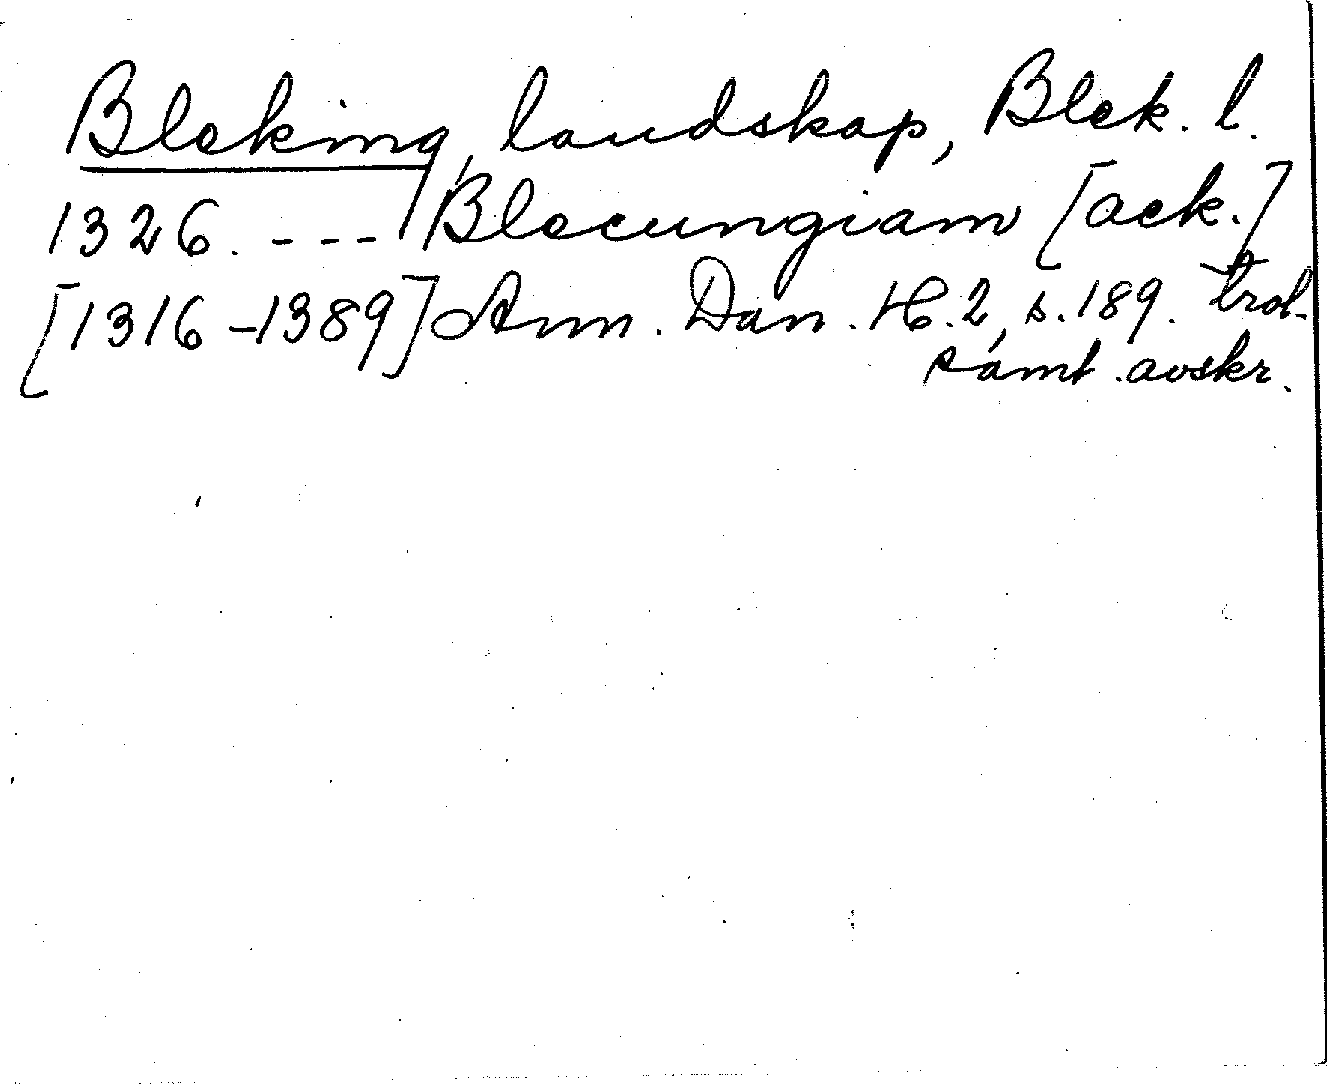 Bleking, landskap, Blek. l.
1326. --- Blecungiam [ack.]
[1316-1389] Ann. Dan. H.2, s.189.
samt. avskr.